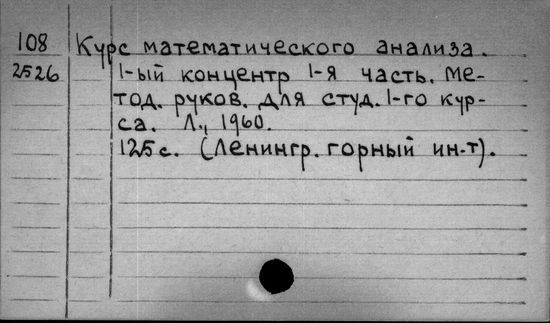 108 Курс математического анализа.
2526 1-ый концентр 1-я часть. Ме-
тод. руков. для студ. 1-го кур-
са. Л., 1960.
125 с. (Ленингр. горный ин-т).